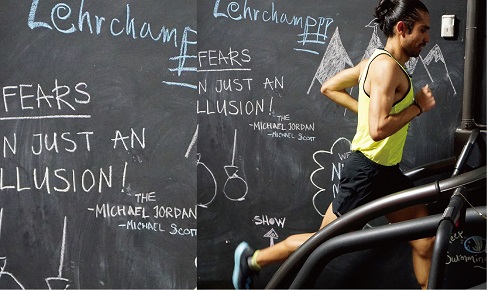 Lehrcham
FEARS
N JUST AN
LLUSION!
THE
-MICHAEL JORDAN
-MICHAEL SCOTT
Lehrchamppp
FEARS
N JUST AN
LLUSION!
THE
-MICHAEL JORDAN
-MICHAEL SCOTT
SHOW
Swimmin